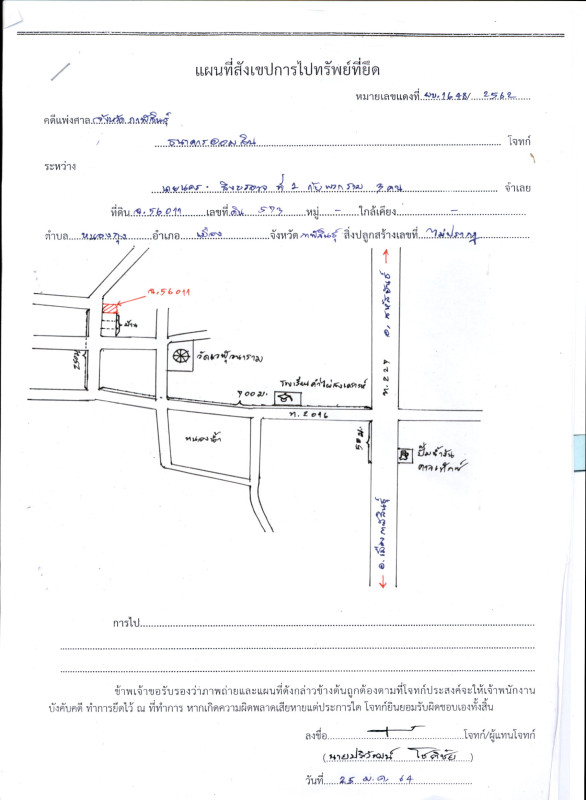 แผนที่สังเขปการไปทรัพย์ที่ยึด
หมายเลขแดงที่ ผบ.1648/2562
คดีแพ่งศาล จังหวัดกาฬสินธุ์
ธนาคารออมสิน โจทก์
ระหว่าง
ที่ 1 กับพวกรวม 3 คน จำเลย
ที่ดิน ฉ.56011 เลขที่ดิน 573 หมู่ - ใกล้เคียง -
ตำบล หนองกุง อำเภอ เมือง จังหวัด กาฬสินธุ์ สิ่งปลูกสร้างเลขที่ ไม่ปรากฏ
อ.สหัสขันธ์
ฉ.56011
บ้าน
250ม.
ท.227
700ม.
ท.2016
หนองน้ำ
50ม.
ปั๊มน้ำมัน
อ.เมืองกาฬสินธุ์
การไป
ข้าพเจ้าขอรับรองว่าภาพถ่ายและแผนที่ดังกล่าวข้างต้นถูกต้องตามที่โจทก์ประสงค์จะให้เจ้าพนักงาน
บังคับคดี ทำการยึดไว้ ณ ที่ทำการ หากเกิดความผิดพลาดเสียหายแต่ประการใด โจทก์ยินยอมรับผิดชอบเองทั้งสิ้น
ลงชื่อ โจทก์/ผู้แทนโจทก์
(นายปริวัฒน์ โชติชัย)
วันที่ 25 ม.ค. 64